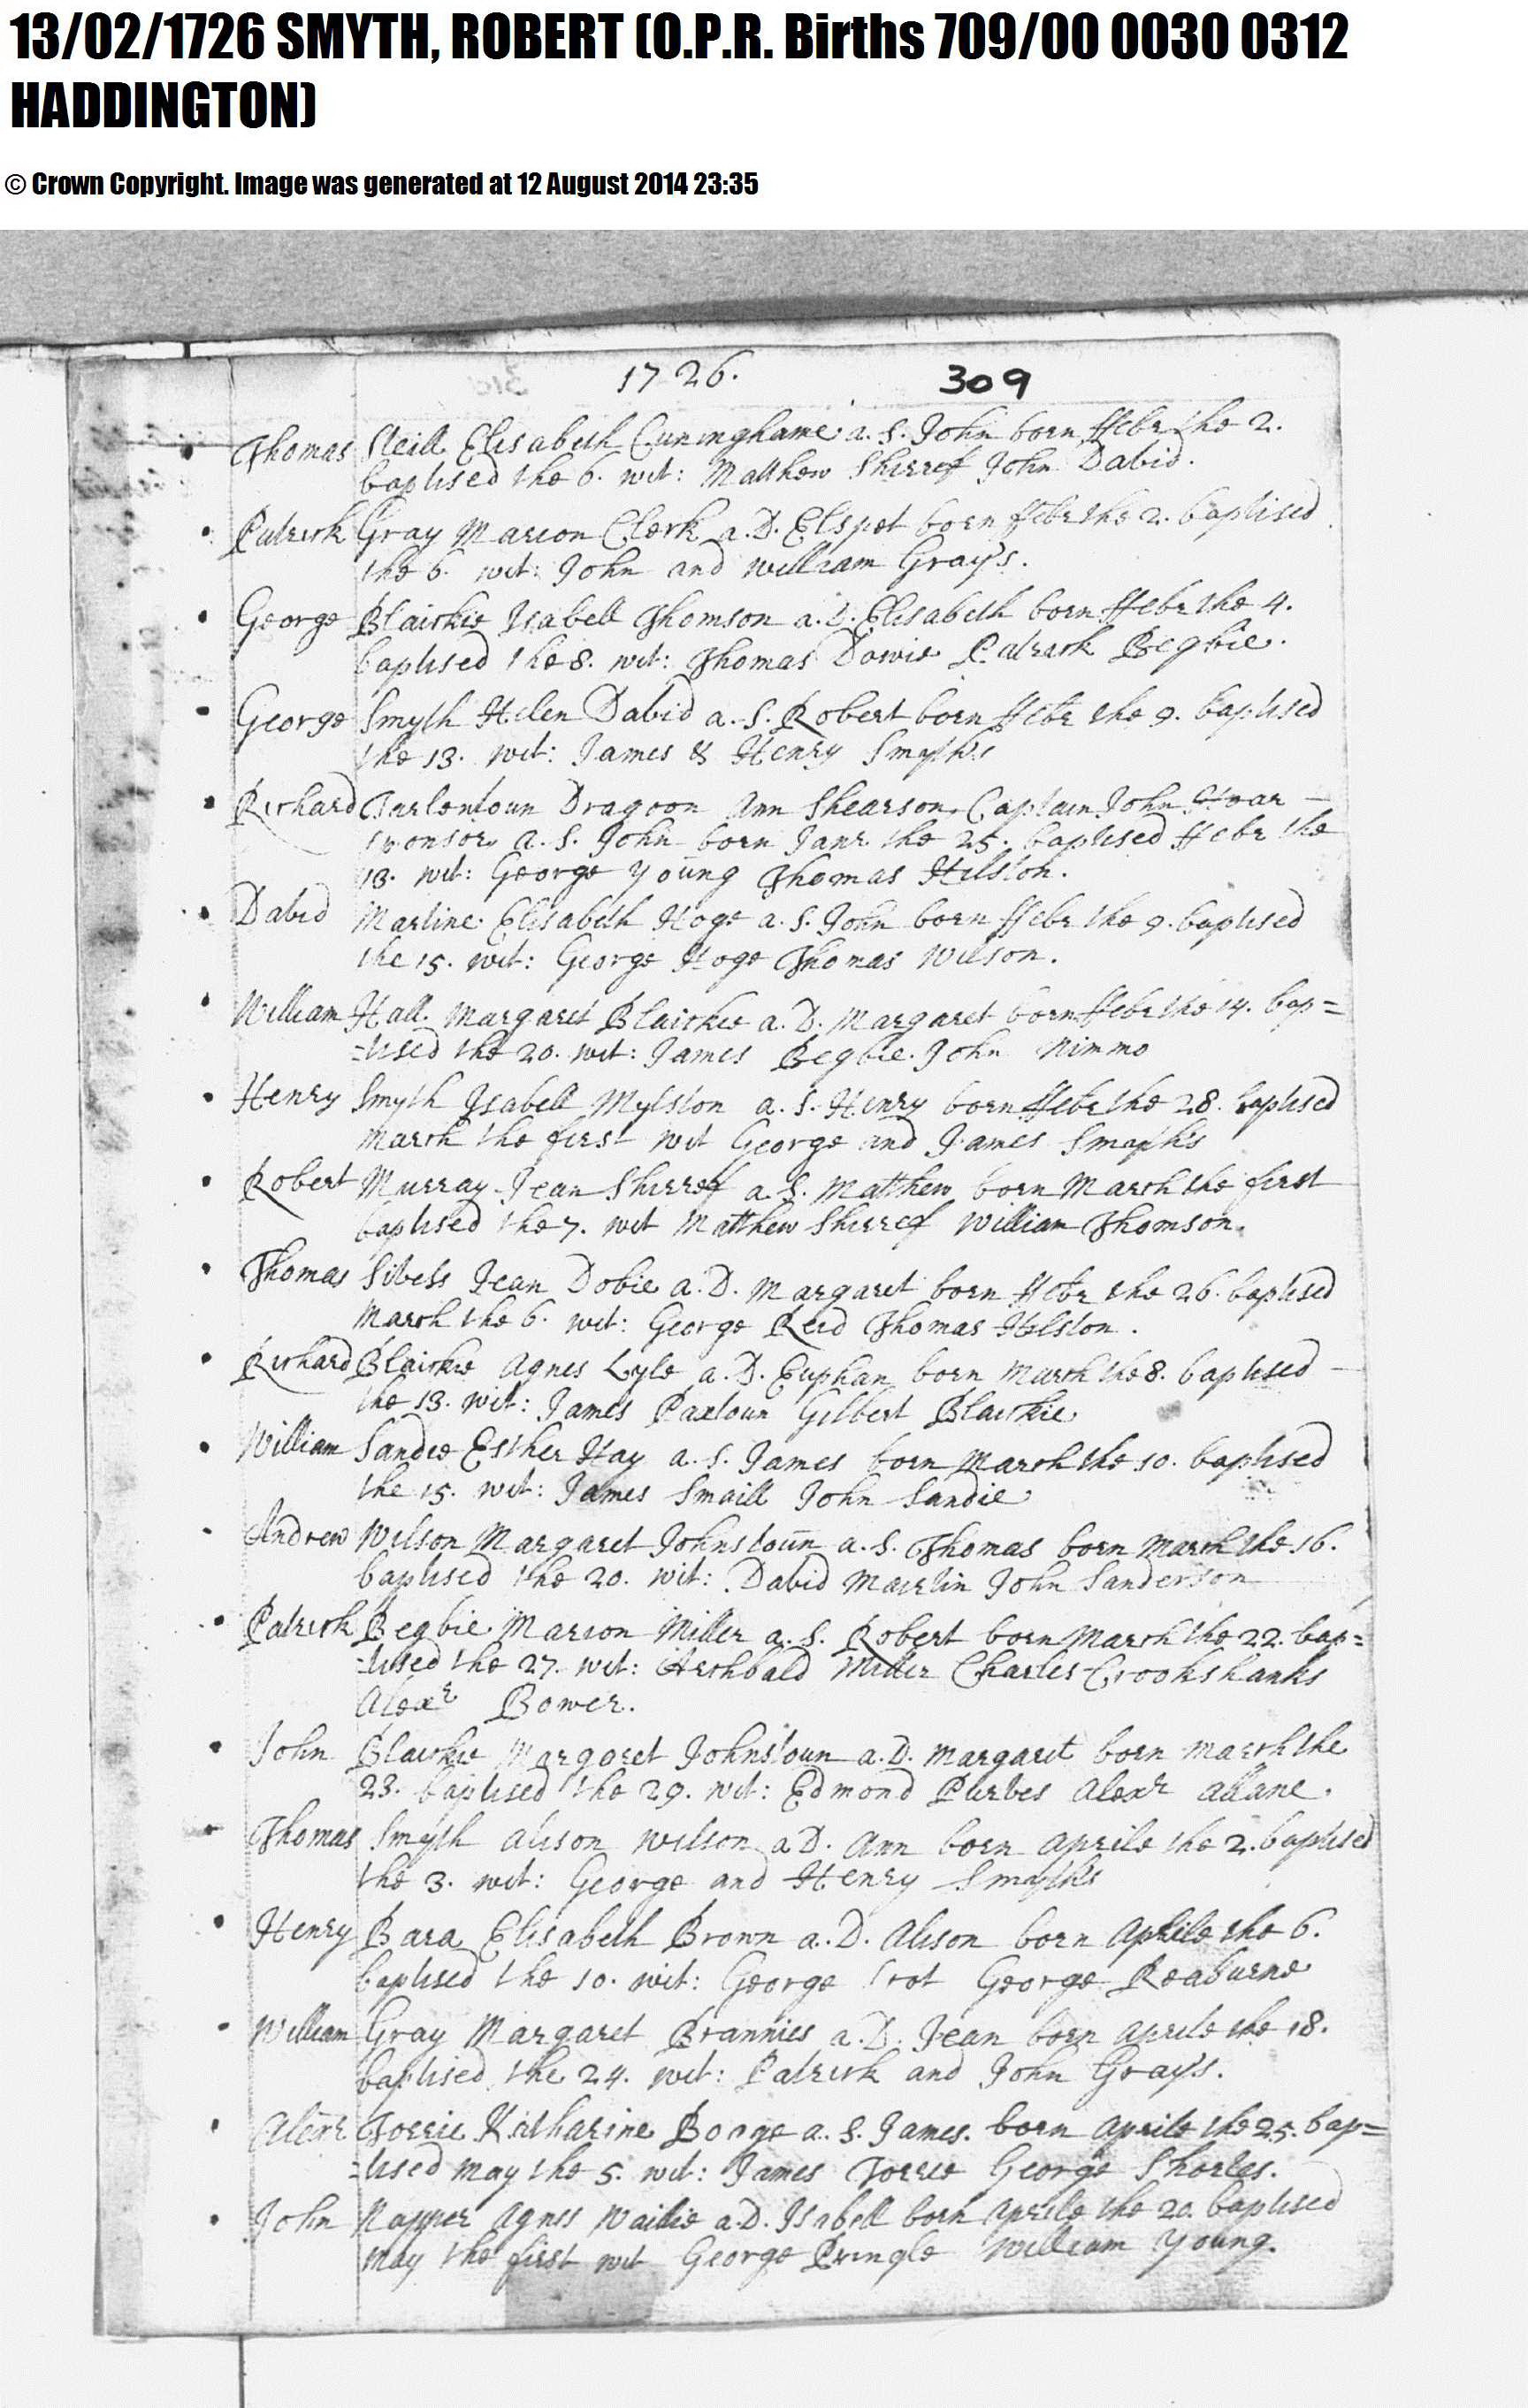 13/02/1726 SMYTH, ROBERT (O.P.R. Births 709/00 0030 0312
HADDINGTON)
© Crown Copyright. Image was generated at 12 August 2014 23:35
1726.
309
Thomas Neill Elisabeth Cuninghame a. S. John born ffebr the 2.
baptised the 6. wit: Matthew Shirref John David.
Patrick Gray Marion Clerk a. D. Elspet born ffebr the 2. baptised
the 6. wit: John and William Gray's.
George Blaickie Isabell Thomson a. D. Elisabeth born ffebr the 4.
baptised the 8. wit: Thomas Dowie Patrick Begbie.
George Smyth Helen David a. S. Robert born ffebr the 9. baptised
the 13. wit: James & Henry Smyths
Richard Tarlentoun Dragoon Ann Shearson, Captain John
sponsor, a. S. John born Janr the 25. baptised ffebr the
13. wit: George Young Thomas Hilston.
David Martine Elisabeth Hoge a. S. John born ffebr the 9. baptised
the 15. wit: George Hoge Thomas Wilson.
William Hall Margaret Blaickie a. D. Margaret born ffebr the 14. bap=
=tised the 20. wit: James Begbie John Nimmo
Henry Smyth Isabell Mylston a. S. Henry born ffebr the 28. baptised
March the first wit George and James Smyth's
Robert Murray Jean Shirref a. S. Matthew born March the first
baptised the 7. wit Matthew Shirref William Thomson.
Thomas Jean Dobie a. D. Margaret born ffebr the 26. baptised
March the 6. wit: George Reid Thomas Hilston.
Richard Blaickie Agnes Lyle a. D. Euphan born March the 8. baptised
the 13. wit: James Paxtoun Gilbert Blaickie
William Sandie Esther Hay a. S. James born March the 10. baptised
the 15. wit: James Smaill John Sandie
Andrew Wilson Margaret Johnstoun a. S. Thomas born March the 16.
baptised the 20. wit: David Mairtin John Sanderson
Patrick Begbie Marion Miller a. S. Robert born March the 22. bap=
=tised the 27. wit: Archbald Miller Charles Crookshanks
Alexr Bower.
John Blaickie Margaret Johnstoun a. D. Margaret born March the
23. baptised the 29. wit: Edmond Purves Alexr Allane.
Thomas Smyth Alison Wilson a D. Ann born Aprile the 2. baptised
the 3. wit: George and Henry Smyths
Henry Bara Elisabeth Brown a. D. Alison born Aprile the 6.
baptised the 10. wit: George Trot George Reaburne
William Gray Margaret Brannies a. D. Jean born Aprile the 18.
baptised the 24. wit: Patrick and John Gray's.
Alexr Torrie Katharine a. S. James born Aprile the 25. bap=
=tised May the 5. wit: James Torrie George
John Napper Agnes Waikie a. D. Isabell born Aprile the 20. baptised
May the first wit George Pringle William Young.